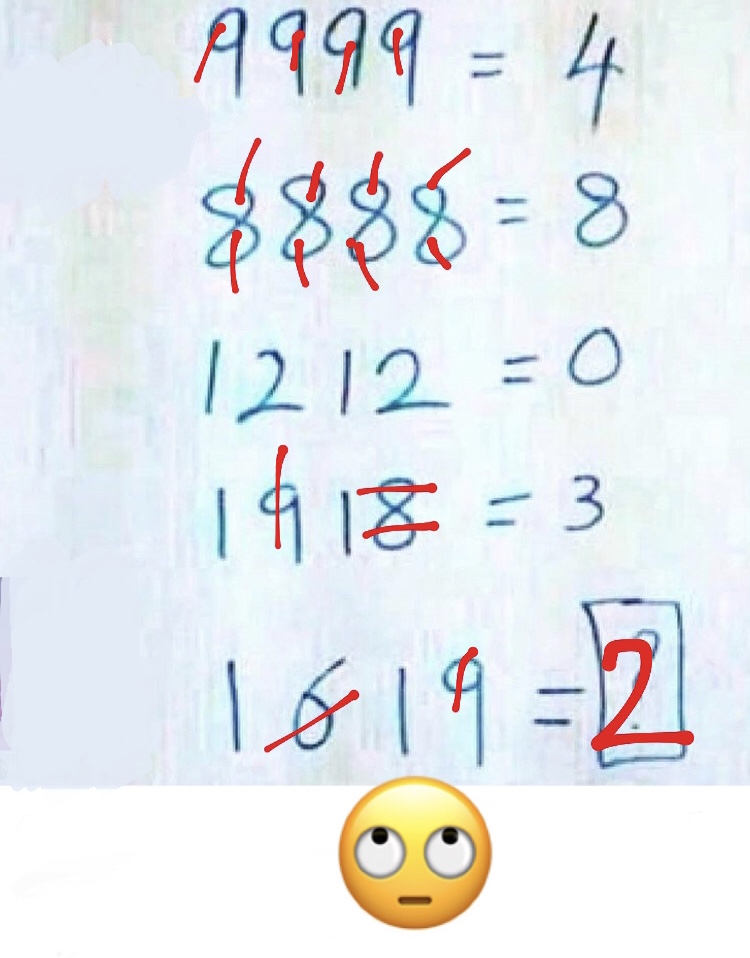 9999 = 4
8888 = 8
1212 = 0
1918 = 3
1619 = 2